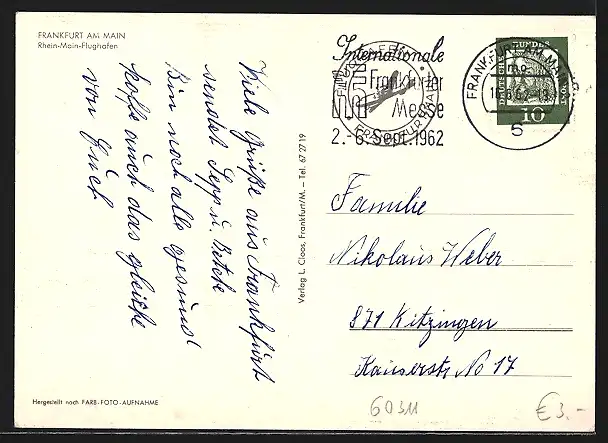 FRANKFURT AM MAIN
Rhein-Main-Flughafen
Viele Grüße aus Frankfurt
sendet Sepp u. Betete
Bin noch alle gesund
hoffe auch das gleiche
von Euch
Hergestellt nach FARB-FOTO-AUFNAHME
Verlag L. Cloos, Frankfurt/M. – Tel. 67 27 19
Internationale
Frankfurter
Messe
2.-6. Sept. 1962
FRANKFURT AM MAIN
5
DEUTSCHE BUNDESPOST
10
Familie
Nikolaus Weber
871 Kitzingen
Kaiserstr No 17
60311
€3.-